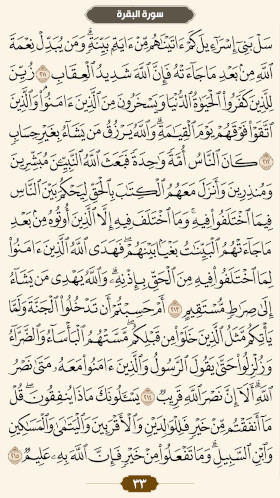 سورة البقرة
سَلْ بَنِىٓ إِسْرَٰٓءِيلَ كَمْ ءَاتَيْنَٰهُم مِّنْ ءَايَةٍۭ بَيِّنَةٍ ۗ وَمَن يُبَدِّلْ نِعْمَةَ
ٱللَّهِ مِنۢ بَعْدِ مَا جَآءَتْهُ فَإِنَّ ٱللَّهَ شَدِيدُ ٱلْعِقَابِ ٢١١ زُيِّنَ
لِلَّذِينَ كَفَرُوا۟ ٱلْحَيَوٰةُ ٱلدُّنْيَا وَيَسْخَرُونَ مِنَ ٱلَّذِينَ ءَامَنُوا۟ ۘ وَٱلَّذِينَ
ٱتَّقَوْا۟ فَوْقَهُمْ يَوْمَ ٱلْقِيَٰمَةِ ۗ وَٱللَّهُ يَرْزُقُ مَن يَشَآءُ بِغَيْرِ حِسَابٍ
٢١٢ كَانَ ٱلنَّاسُ أُمَّةً وَٰحِدَةً فَبَعَثَ ٱللَّهُ ٱلنَّبِيِّـۧنَ مُبَشِّرِينَ
وَمُنذِرِينَ وَأَنزَلَ مَعَهُمُ ٱلْكِتَٰبَ بِٱلْحَقِّ لِيَحْكُمَ بَيْنَ ٱلنَّاسِ
فِيمَا ٱخْتَلَفُوا۟ فِيهِ ۚ وَمَا ٱخْتَلَفَ فِيهِ إِلَّا ٱلَّذِينَ أُوتُوهُ مِنۢ بَعْدِ
مَا جَآءَتْهُمُ ٱلْبَيِّنَٰتُ بَغْيًۢا بَيْنَهُمْ ۖ فَهَدَى ٱللَّهُ ٱلَّذِينَ ءَامَنُوا۟
لِمَا ٱخْتَلَفُوا۟ فِيهِ مِنَ ٱلْحَقِّ بِإِذْنِهِۦ ۗ وَٱللَّهُ يَهْدِى مَن يَشَآءُ
إِلَىٰ صِرَٰطٍ مُّسْتَقِيمٍ ٢١٣ أَمْ حَسِبْتُمْ أَن تَدْخُلُوا۟ ٱلْجَنَّةَ وَلَمَّا
يَأْتِكُم مَّثَلُ ٱلَّذِينَ خَلَوْا۟ مِن قَبْلِكُم ۖ مَّسَّتْهُمُ ٱلْبَأْسَآءُ وَٱلضَّرَّآءُ
وَزُلْزِلُوا۟ حَتَّىٰ يَقُولَ ٱلرَّسُولُ وَٱلَّذِينَ ءَامَنُوا۟ مَعَهُۥ مَتَىٰ نَصْرُ
ٱللَّهِ ۗ أَلَآ إِنَّ نَصْرَ ٱللَّهِ قَرِيبٌ ٢١٤ يَسْـَٔلُونَكَ مَاذَا يُنفِقُونَ ۖ قُلْ
مَآ أَنفَقْتُم مِّنْ خَيْرٍ فَلِلْوَٰلِدَيْنِ وَٱلْأَقْرَبِينَ وَٱلْيَتَٰمَىٰ وَٱلْمَسَٰكِينِ
وَٱبْنِ ٱلسَّبِيلِ ۗ وَمَا تَفْعَلُوا۟ مِنْ خَيْرٍ فَإِنَّ ٱللَّهَ بِهِۦ عَلِيمٌ ٢١٥
٣٣